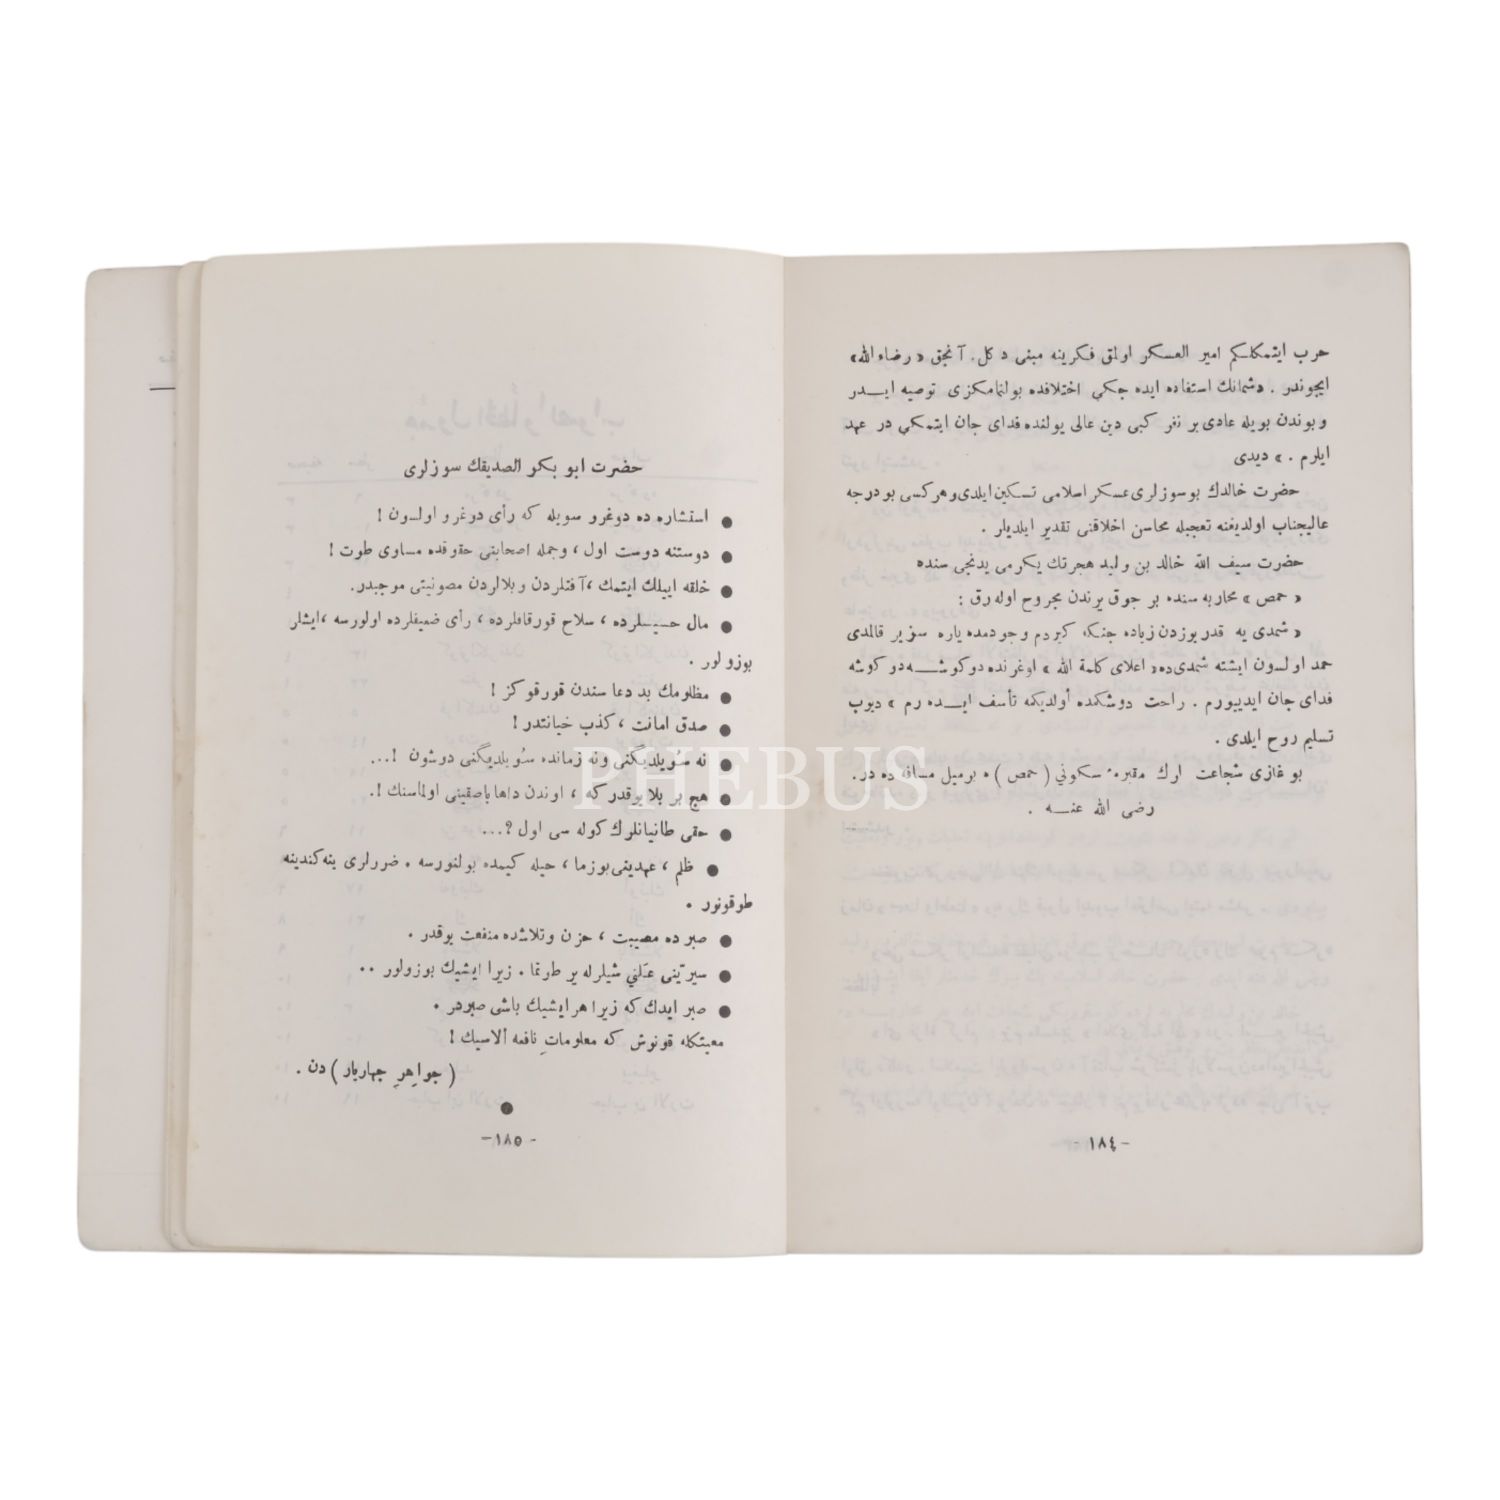 حرب ايتمكلكم امير العسكر اولمق فكرينه مبنى دكل. آنجق « رضاء الله»
ايچوندر . دشمانك استفاده ايده جكى اختلافده بولنمامكزى توصيه ايدر
وبوندن بويله عادى بر نفر كبى دين عالى يولنده فداى جان ايتمكى در عهد
ايلرم . » ديدى
حضرت خالدك بو سوزلرى عسكر اسلامى تسكين ايلدى و هركسى بو درجه
عاليجناب اولديغنه تعجبله محاسن اخلاقنى تقدير ايلديلر .
حضرت سيف الله خالد بن وليد هجرتك يكرمى يدنجى سنده
« حمص » محاربه سنده بر جوق يرندن مجروح اوله رق :
« شمدى يه قدر يوزدن زياده جنكه كيردم وجودمده ياره سز ير قالمدى
حمد اولسون ايشته شمدى ده « اعلاى كلمة الله » اوغرنده دوكوشه دوكوشه
فداى جان ايدييورم . راحت دوشكمده أولديكمه تأسف ايده رم » ديوب
تسليم روح ايلدى .
بو غازى شجاعت ارك مقبرهٔ سكونى ( حمص ) ه بر ميل مسافه ده در .
رضى الله عنه .
- ١٨٤ -
حضرت ابو بكر الصديقك سوزلرى
● استشاره ده دوغرو سويله كه رأى دوغرو اولسون !
● دوستنه دوست اول ، وجمله اصحابنى حقوقده مساوى طوت !
● خلقه اييلك ايتمك ، آفتلردن و بلالردن مصونيتى موجبدر .
● مال خسيسلرده ، سلاح قورقاقلرده ، رأى ضعيفلرده اولورسه ، ايشلر
بوزولور .
● مظلومك بد دعا سندن قورقوكز !
● صدق امانت ، كذب خيانتدر !
● نه سُويلديگنى ونه زمانده سُويلديگنى دوشون !...
● هج بر بلا يوقدر كه ، اوندن داها باصقينى اولماسنك !.
● حقى طانيانلرك كوله سى اول ؟...
● ظلم ، عهدينى بوزما ، حيله كيمده بولنورسه . ضررلرى ينه كندينه
طوقونور .
● صبر ده مصيبت ، حزن وتلاشده منفعت يوقدر .
● سيرّينى عَلنى شيلرله بر طوتما . زيرا ايشيك بوزولور ..
● صبر ايدك كه زيرا هر ايشيك باشى صبردر .
معيتكله قونوش كه معلوماتِ نافعه ألاسيك !
( جواهرِ جهاريار ) دن .
●
- ١٨٥ -
PHEBUS